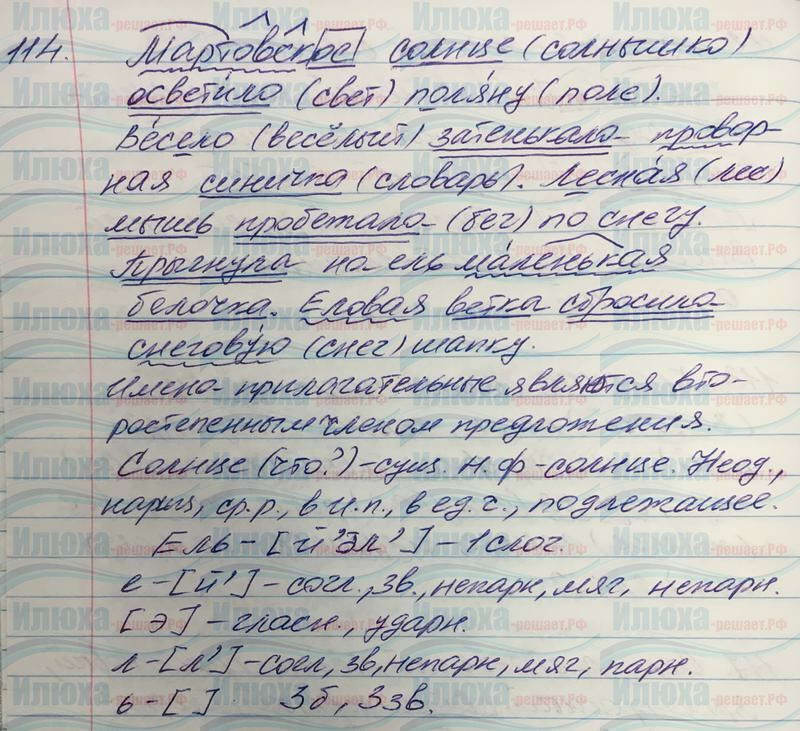 114. Мартовское солнце (солнышко)
осветило (свет) поляну (поле).
Весело (весёлый) затенькала провор-
ная синичка (словарь). Лесная (лес)
мышь пробежала (бег) по снегу.
Прыгнула на ель маленькая
белочка. Еловая ветка сбросила
снеговую (снег) шапку.
Имена прилагательные являются вто-
ростепенным членом предложения.
Солнце (что?) - сущ. н.ф - солнце. Неод.,
нариц, ср.р., в и.п., в ед.ч., подлежащее.
Ель - [й'эл'] - 1 слог.
е - [й'] - согл., зв., непарн, мяг, непарн.
[э] - гласн., ударн.
л - [л'] - согл, зв, непарн, мяг, парн.
ь - [ ] 3б, 3зв.
Илюха-решает.РФ